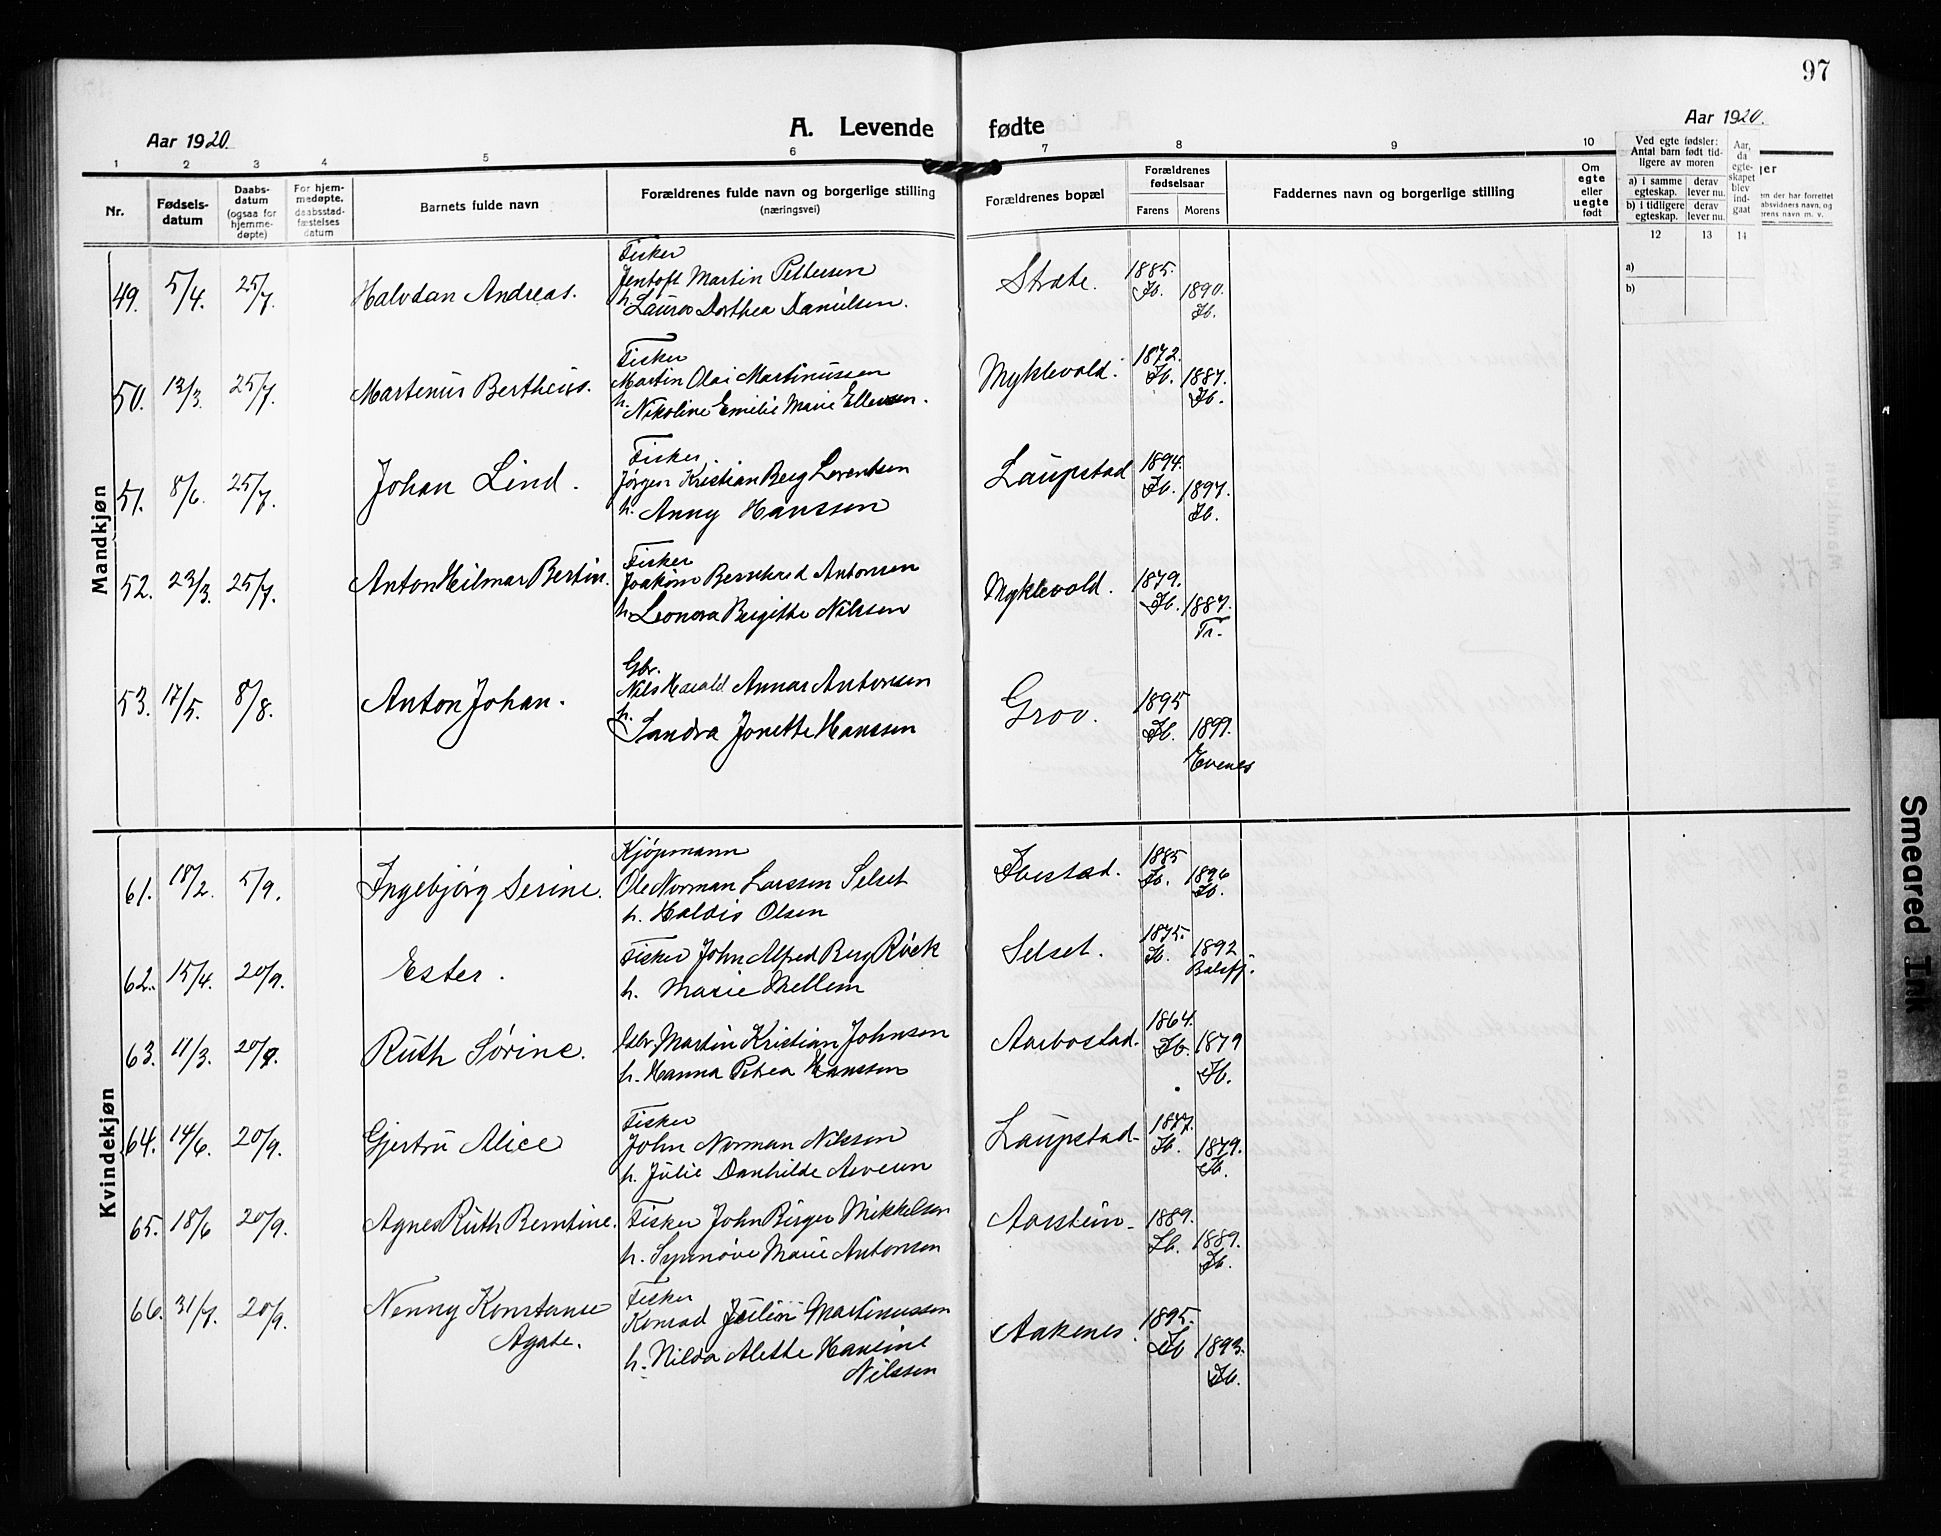 97
Aar 1920.
A. Levende fødte
Aar 1920.
1 2 3 4 5 6 7 8 9 10
Nr.
Fødsels-
datum
Daabs-
datum
(ogsaa for
hjemme-
døpte)
For hjem-
medøpte.
daabsstad-
fæstelses
datum
Barnets fulde navn
Forældrenes fulde navn og borgerlige stilling
(næringsvei)
Forældrenes bopæl
Forældrenes
fødselsaar
Farens Morens
Faddernes navn og borgerlige stilling
Om
egte
eller
uegte
født
Ved egte fødsler:
Antal barn født tid-
ligere av moren
a) i samme
egteskap.
derav
lever nu.
b) i tidligere
egteskap.
derav
lever nu.
Aar,
da
egte-
skapet
blev
ind-
gaat
12 13 14
a)
b)
jer
em der har forrettet
absvidners navn, og
erens navn m. v.
Mandkjøn
49. 5/4. 25/7. Halvdan Andreas.
Fisker
Jentoft Martin Pettersen
h. Laura Dorthea Danielsen.
Strate. 1885. Ib. 1890. Ib.
50. 13/3. 25/7. Martenus Bertheus.
Fisker
Martin Olai Martinussen
h. Nikoline Emilie Marie Ellevsen.
Myklevold. 1872. Ib. 1887. Ib.
51. 8/6. 25/7. Johan Lind.
Fisker
Jørgen Kristian Berg Lorentsen
h. Anny Hanssen
Laupstad 1894. Ib. 1897. Ib.
52. 23/3. 25/7. Anton Hilmar Bertin.
Fisker
Joakim Bernhard Antonsen
h. Leonora Birgitte Nilssen
Myklevold. 1879. Ib. 1887. Tr.
53. 17/5. 8/8. Anton Johan.
Gbr.
Nils Harald Annar Antonsen
h. Sandra Jonette Hanssen
Grov. 1895 Ib. 1899. Evenes
Kvindekjøn
61. 18/2. 5/9. Ingebjörg Serine.
Kjøpmann
Ole Norman Larssen Selset
h. Haldis Olsen
Ibestad. 1885 Ib. 1896 Ib.
62. 15/4. 20/9. Ester.
Fisker John Alfred Berg Röck
h. Marie Mellem
Selset. 1875. Ib. 1892 Balsfj.
63. 11/3. 20/9. Ruth Sörine.
Gbr. Martin Kristian Johnsen
h. Hanna Petrea Hanssen
Aarbostad. 1864. Ib. 1879 Ib.
64. 14/6. 20/9. Gjertru Alice
Fisker
John Norman Nilssen
h. Julie Danhilde
Laupstad 1877. Ib. 1879. Ib.
65. 18/6 20/9. Agnes Ruth Berntine.
Fisker John Birger Mikkelsen
h. Synnöve Marie Antonsen
Aarstein 1889. Ib. 1889. Ib.
66. 31/7. 20/9. Nenny Konstanse
Agate.
Fisker
Konrad Julin Martinussen
h. Hilda Alette Hansine
Nilssen
Aakenes. 1895. Ib 1893. Ib.
Smeared Ink